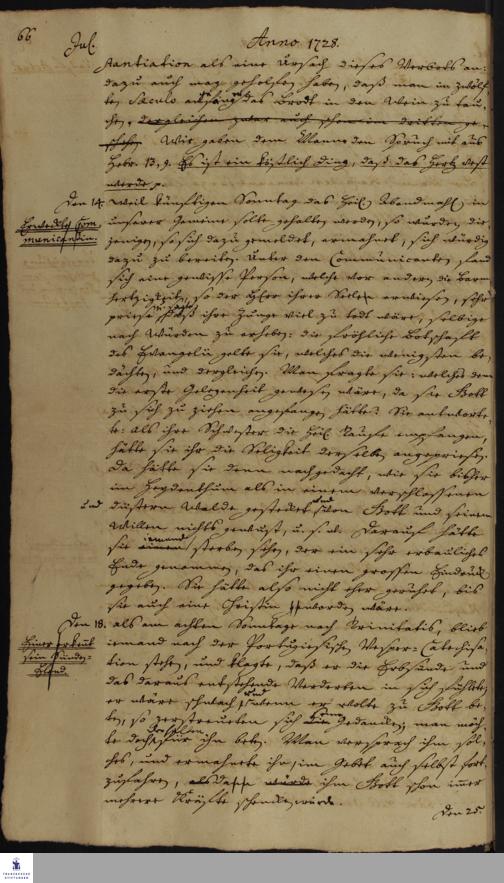 66
Jul. Anno 1728.
stantiation als eine Ursach dieses Verbots an:
dazu auch mag geholfen haben, daß man im zwölf
ten Saeculo anfing das Brodt in den Wein zu tau
chen, dergleichen zwar auch schon im dritten ge
schehen. Wir gaben dem Manne den Spruch mit aus
Hebr. 13, 9. Es ist ein köstlich Ding, daß das Hertz vest
werde p.
Den 14. Weil künftigen Sonntag das Heil. Abendmahl in
Erweckte Com
municantin.
unserer Gemeine solte gehalten werden, so wurden die
jenigen, so sich dazu gemeldet, ermahnet, sich würdig
dazu zu bereiten. Unter den Communicanten fand
sich eine gewisse Person, welche vor andern die Barm
hertzigkeit, so der HErr ihrer Seelen erwiesen, sehr
priese, daß ihre Zunge viel zu todt wäre, selbige
nach Würden zu erheben: die fröhliche Botschaft
des Evangelii gelte sie, welches die wenigsten be
dächten, und dergleichen. Man fragte sie: welches denn
die erste Gelegenheit gewesen wäre, da sie Gott
zu sich zu ziehen angefangen hätte? Sie antworte
te: als ihre Schwester die Heil. Taufe empfangen,
hätte sie ihr die Seligkeit derselben angepriesen.
Da hätte sie denn nachgedacht, wie sie bisher
im Heydenthum als in einem verschlossenen
und düstern Walde gestecket und von Gott und seinem
Willen nichts gewust, u. s. w. Darauf hätte
sie jemand sterben sehen, der ein sehr erbauliches
Ende genommen, das ihr einen grossen Eindruck
gegeben. Sie hätte also nicht eher geruhet, bis
sie auch eine Christin worden wäre.
Den 18. als am achten Sonntage nach Trinitatis, blieb
Einer erkent
sein Sünden-
Elend.
iemand nach der Portugiesischen Vesper-Catechisa
tion stehen, und klagte, daß er die Erbsünde und
das daraus entstehende Verderben in sich fühlete,
er wäre schwach, und wenn er wolte zu Gott be
ten, so zerstreueten sich die Gedancken; man möch
te doch für ihn beten. Man versprach ihm sol
ches, und ermahnete ihn, im Gebet auch selbst fort
zufahren, alsdann würde ihm Gott schon immer
mehrere Kräfte schencken würde.
Den 25.
FRANCKESCHE
STIFTUNGEN